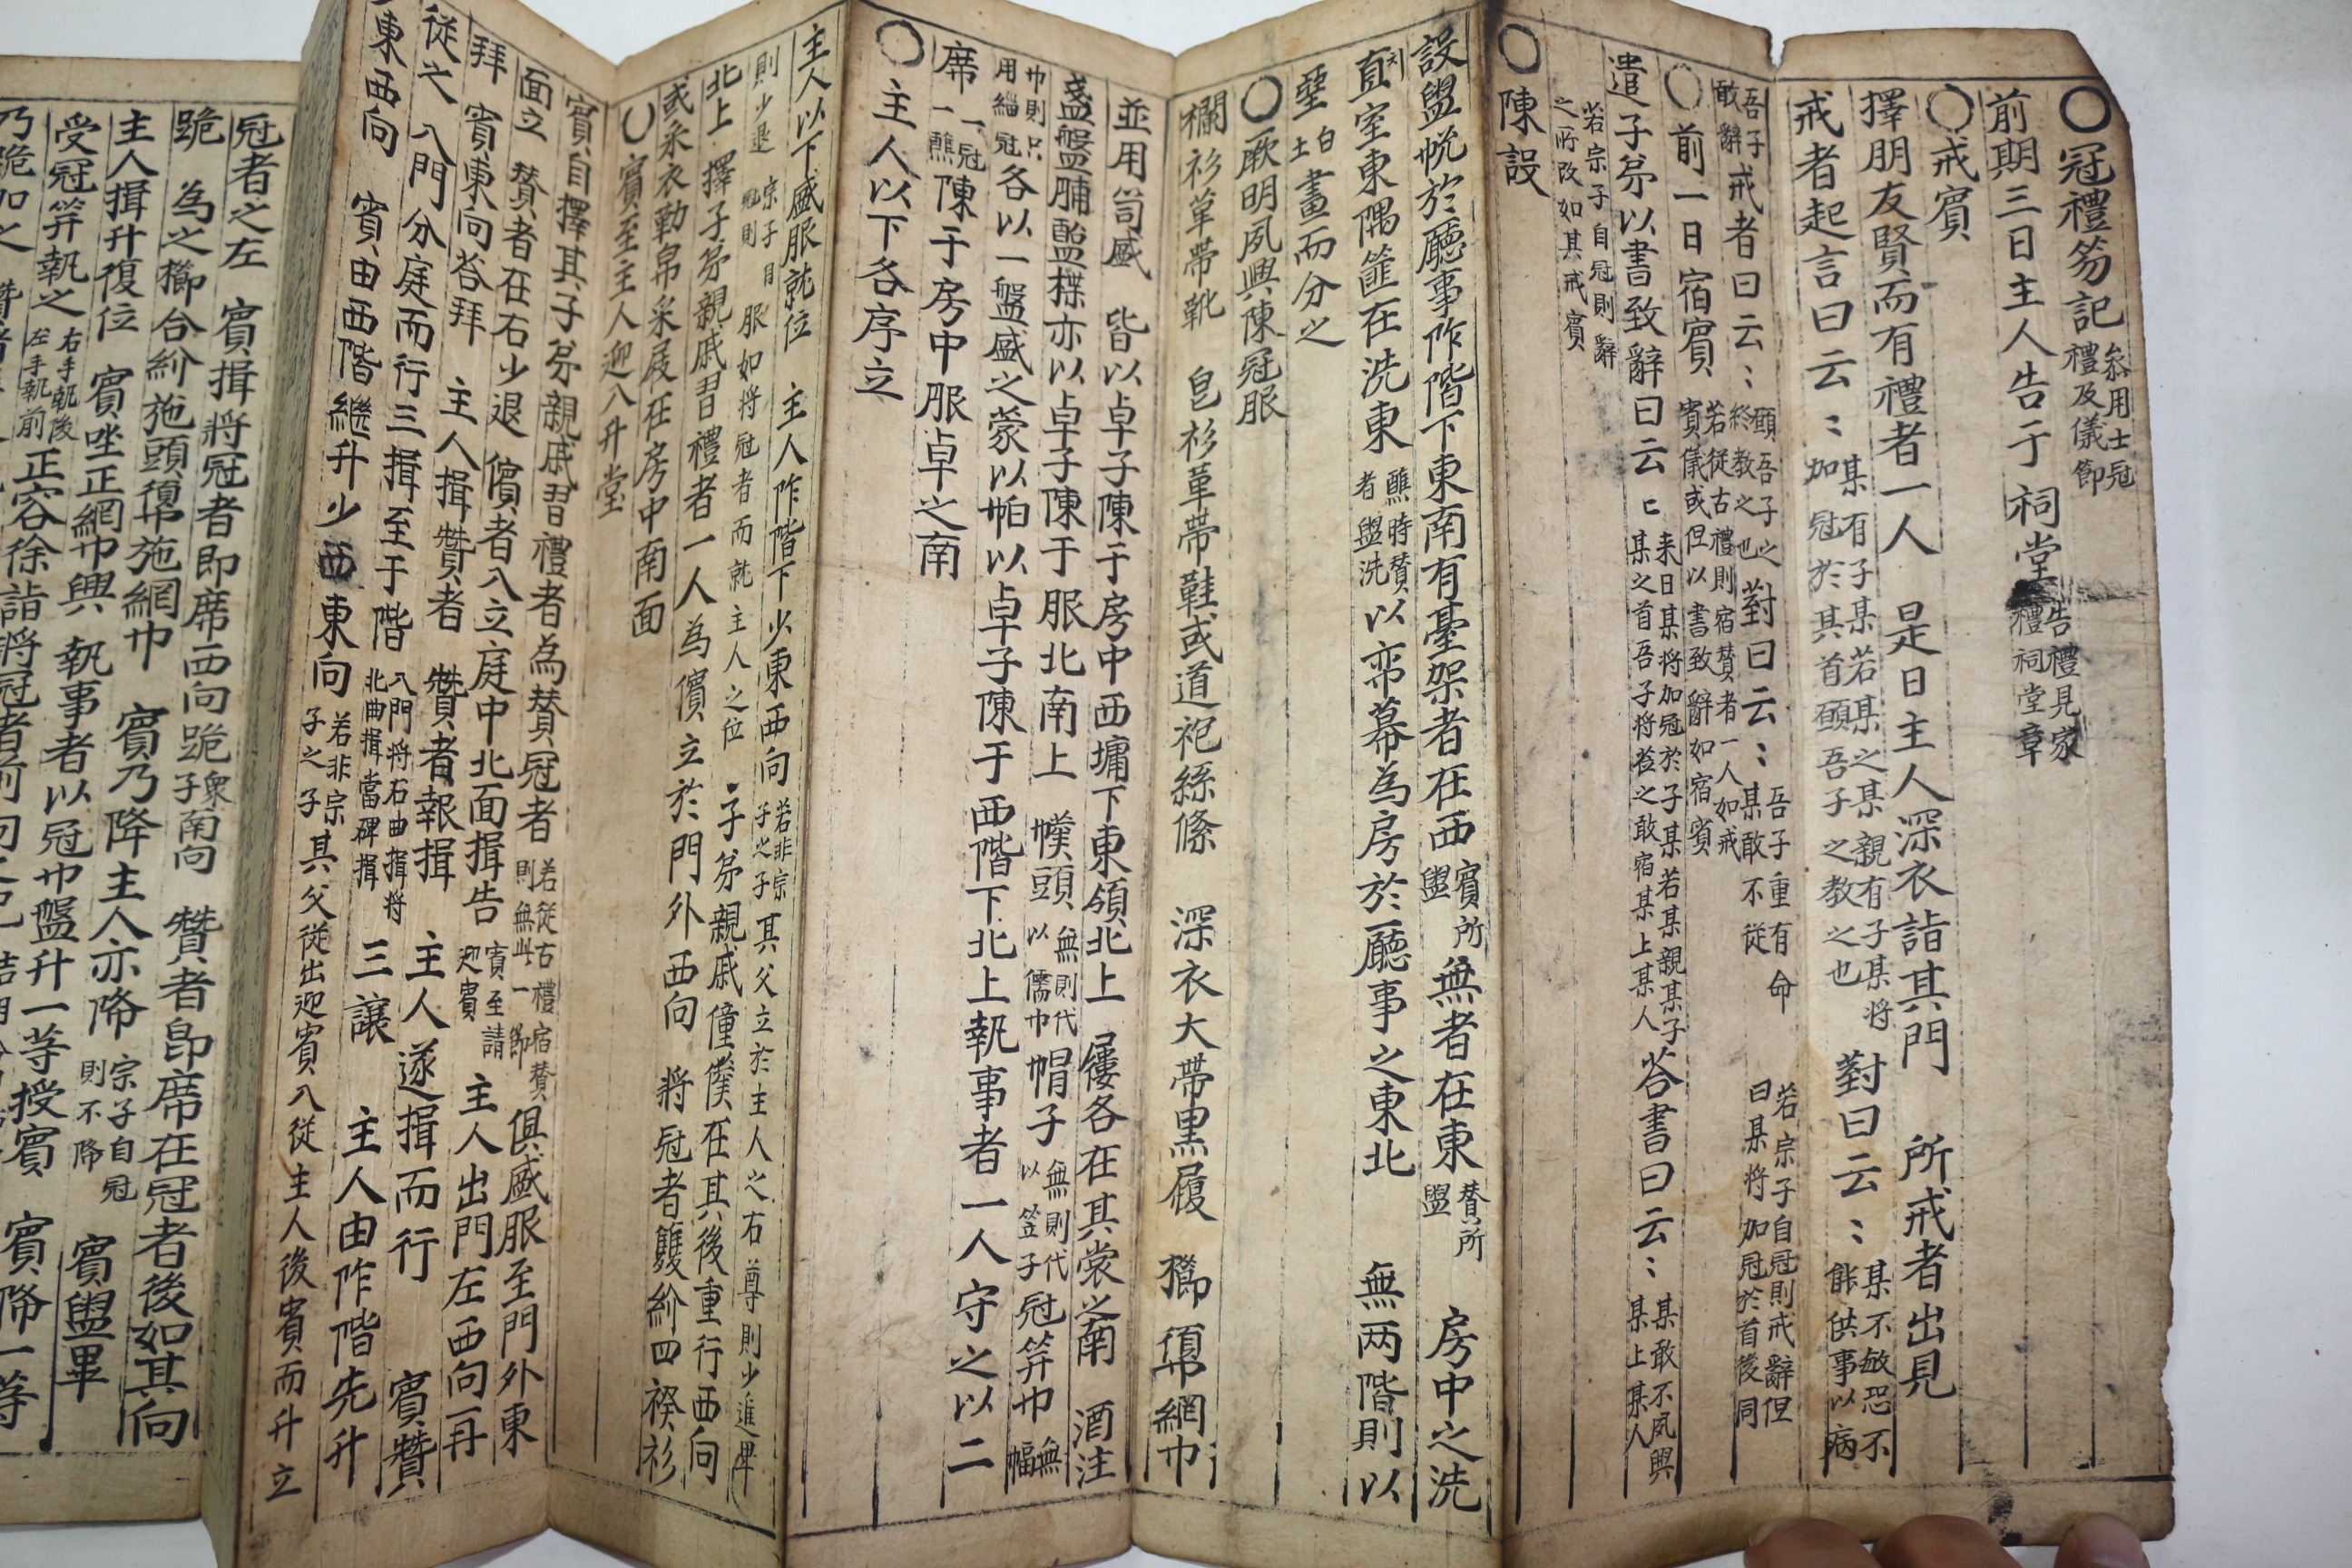 ○冠禮笏記 叅用士冠禮及儀節
前期三日主人告于 祠堂 告禮見家禮祠堂章
○戒賓
擇朋友賢而有禮者一人 是日主人深衣詣其門 所戒者出見
戒者起言曰云〻 某有子某若某之某親有子某將加冠於其首願吾子之教之也 對曰云〻 某不敏恐不能供事以病
吾子敢辭 戒者曰云〻 願吾子之終教之也 對曰云〻 吾子重有命某敢不從 若宗子自冠則戒辭但曰某將加冠於首後同
○前一日宿賓 若從古禮則宿贊者一人如戒賓儀或但以書致辭如宿賓
遣子苐以書致辭曰云〻 來日某將加冠於子某若某親某子某之首吾子將莅之敢宿某上某人 答書曰云〻 某敢不夙興某上某人
若宗子自冠則辭之所改如其戒賓
○陳設
設盥帨於廳事阼階下東南有臺架者在西 賓所盥 無者在東 贊所盥 房中之洗
直室東隅篚在洗東 醮時贊者盥洗 以帟幕為房於廳事之東北 無两階則以
堊 白土 畫而分之
○厥明夙興陳冠服
欄衫革帶靴 皂衫革帶鞋或道袍絲絛 深衣大帶黑履 櫛䪻網巾
並用笥盛 皆以卓子陳于房中西墉下東領北上 屨各在其裳之南 酒注
盞盤脯醢楪亦以卓子陳于服北南上 幞頭 無則代以儒巾 帽子 無則代以笠子 冠笄巾 無幅
巾則只用緇冠 各以一盤盛之蒙以帕以卓子陳于西階下北上執事者一人守之以二
席 一冠一醮 陳于房中服卓之南
○主人以下各序立
主人以下盛服就位 主人阼階下少東西向 若非宗子之子 其父立於主人之右尊則少進卑
則少退 宗子自冠則 服如將冠者而就主人之位 子苐親戚僮僕在其後重行西向
北上 擇子苐親戚習禮者一人為儐立於門外西向 將冠者雙紒四䙆衫
或采衣勒帛采屐在房中南面
○賓至主人迎入升堂
賓自擇其子苐親戚習禮者為賛冠者 若從古禮宿贊則無此一節 俱盛服至門外東
面立 賛者在右少退 儐者入立庭中北面揖告 賓至請迎賓 主人出門左西向再
拜 賓東向答拜 主人揖贊者 贊者報揖 主人遂揖而行 賓贊
從之 入門分庭而行三揖至于階 入門將右曲揖將北曲揖當碑揖 三讓 主人由阼階先升
東西向 賓由西階繼升少西東向 若非宗子之子 其父從出迎賓入從主人後賓而升立
冠者之左 賓揖將冠者即席西向跪 衆子南向 贊者即席在冠者後如其向
跪 為之櫛合紒施頭䪻施網巾 賓乃降主人亦降 宗子自冠則不降 賓盥畢
主人揖升復位 賓坐正網巾興 執事者以冠巾盤升一等授賓 賓降一等
受冠笄執之 右手執後左手執前 正容徐詣將冠者前向